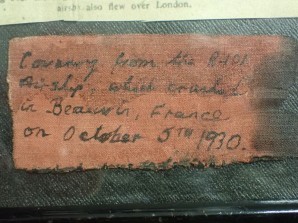 airship also flew over London.
Covering from the R101
Airship, which crashed
in Beauvais, France
on October 5TH 1930.